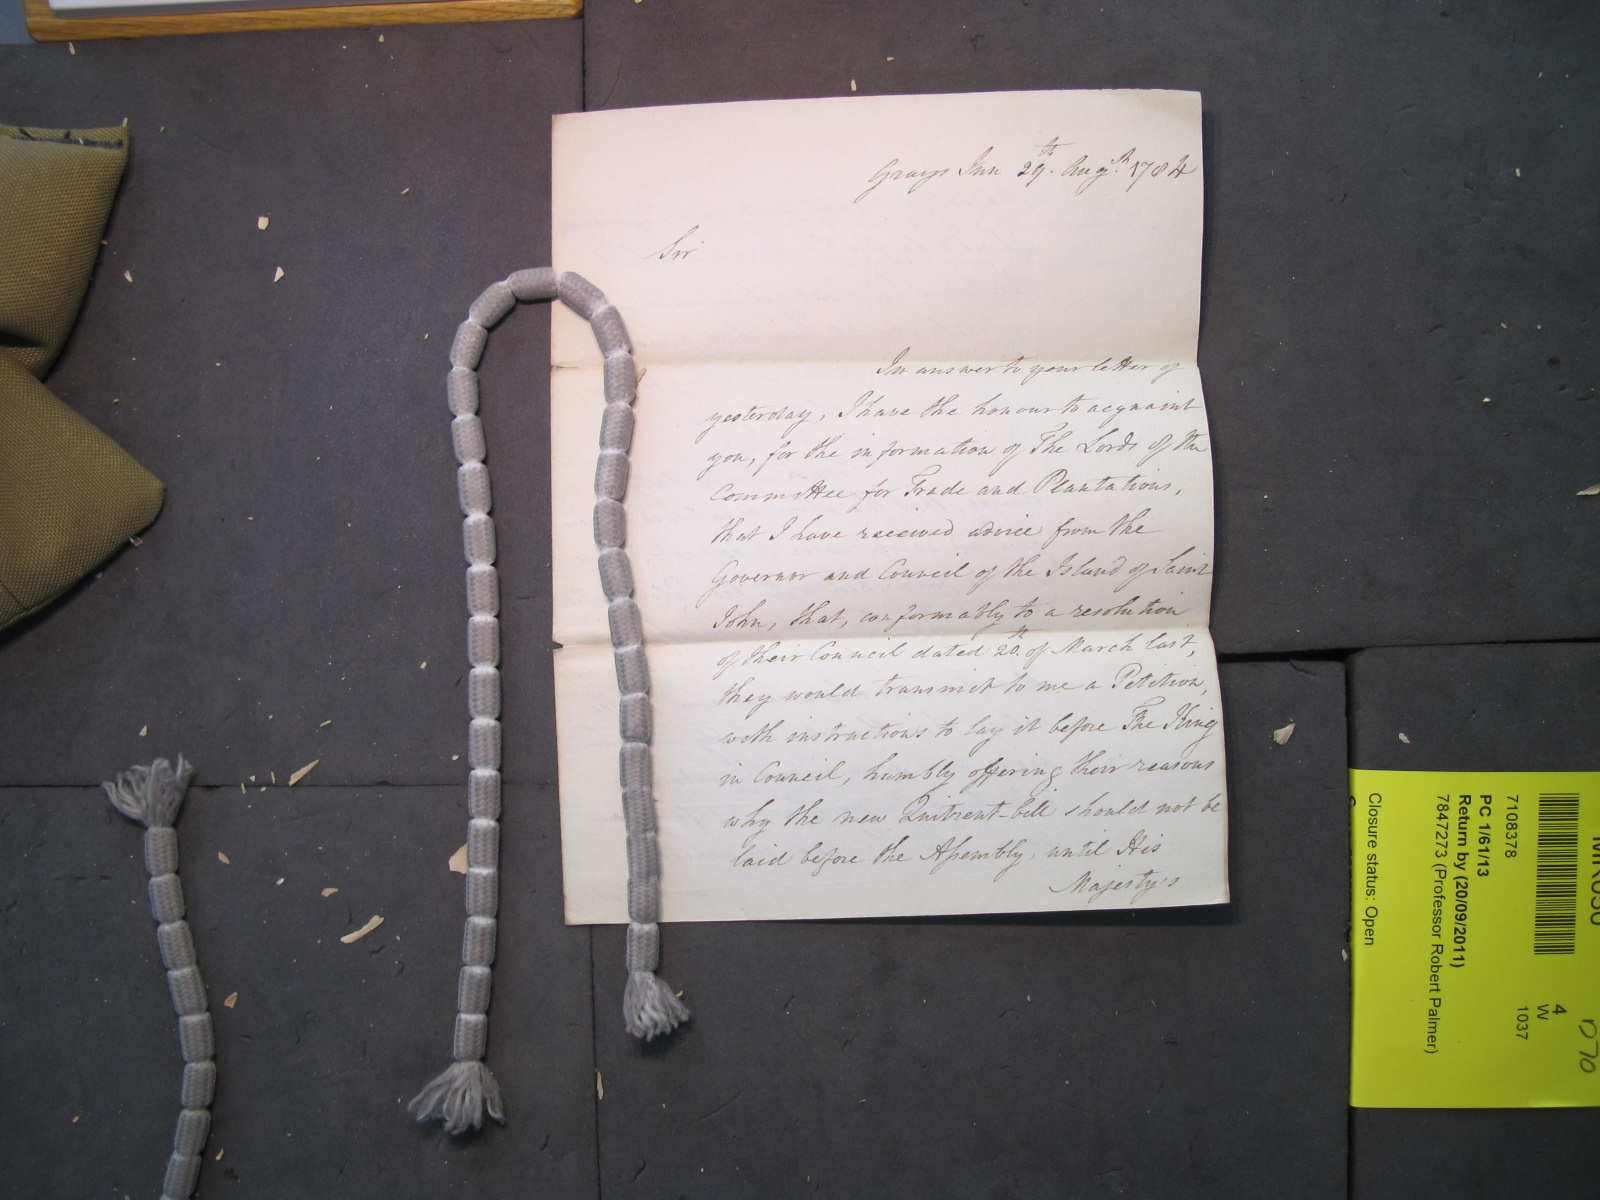 Grays Inn 29th. Augst. 1784
Sir
In answer to your letter of
yesterday, I have the honour to acquaint
you, for the information of The Lords of the
Committee for Trade and Plantations,
that I have received advice from the
Governor and Council of the Island of Saint
John, that, conformably to a resolution
of their Council dated 20th. of March last,
they would transmit to me a Petition,
with instructions to lay it before The King
in Council, humbly offering their reasons
why the new Quitrent-bill should not be
laid before the Assembly, until His
Majesty's
4
W
1037
7108378
PC 1/61/13
Return by (20/09/2011)
7847273 (Professor Robert Palmer)
Closure status: Open